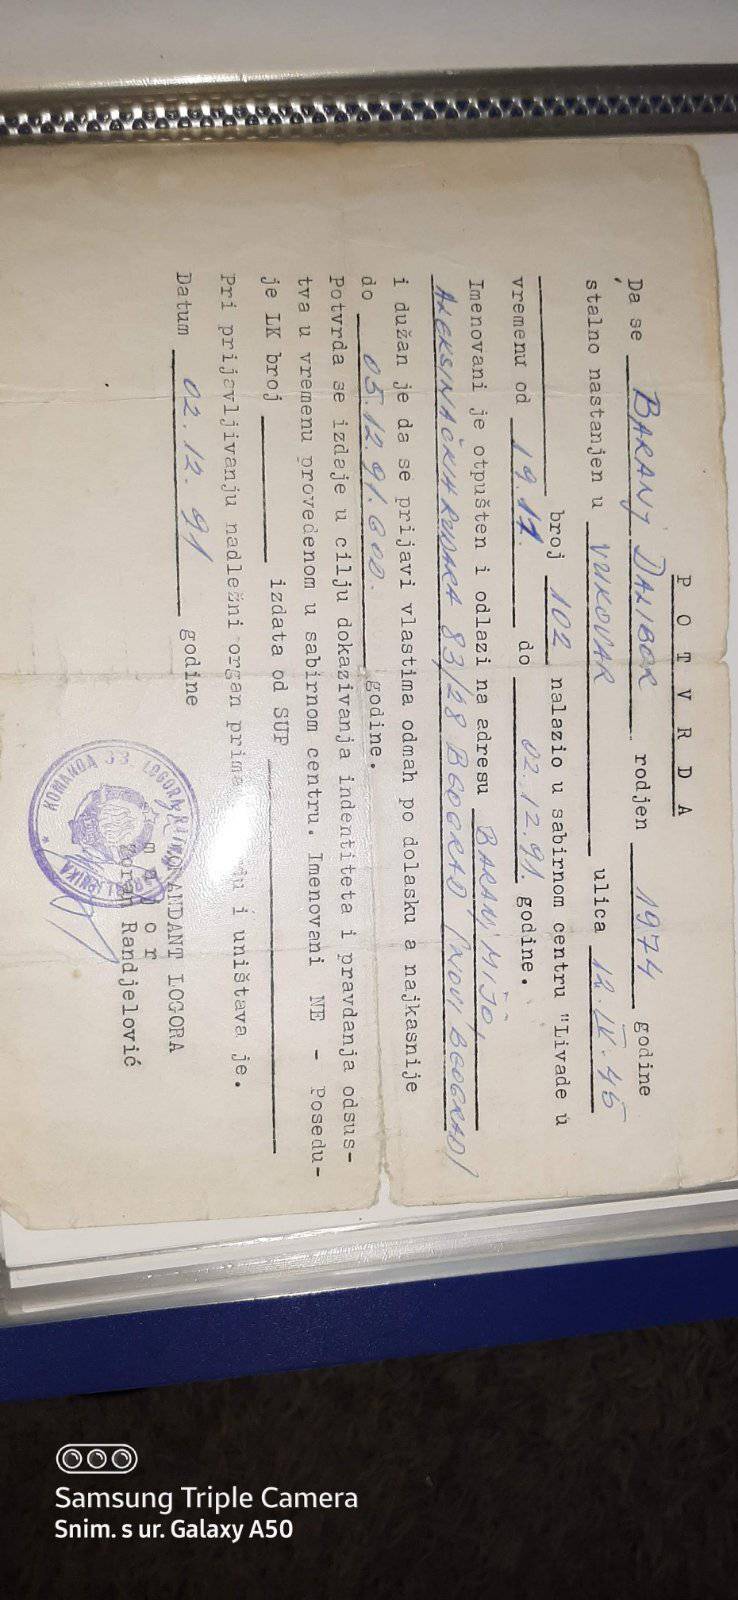 P O T V R D A
Da se BARANJ DALIBOR rodjen 1974 godine
stalno nastanjen u VUKOVAR ulica 12.IX.45
broj 102 nalazio u sabirnom centru "Livade u
vremenu od 19.11. do 02.12.91. godine.
Imenovani je otpušten i odlazi na adresu BARANJ MIJO,
ALEKSINAČKIH RUDARA 83/28 BEOGRAD (NOVI BEOGRAD)
i dužan je da se prijavi vlastima odmah po dolasku a najkasnije
do 05.12.91.GOD. godine.
Potvrda se izdaje u cilju dokazivanja indentiteta i pravdanja odsus-
tva u vremenu provedenom u sabirnom centru. Imenovani NE - Posedu-
je LK broj izdata od SUP
Pri prijavljivanju nadležni organ prima i uništava je.
Datum 02.12.91 godine
KOMANDANT LOGORA
m a j o r
Zoran Randjelović
KOMANDA LOGORA
Samsung Triple Camera
Snim. s ur. Galaxy A50